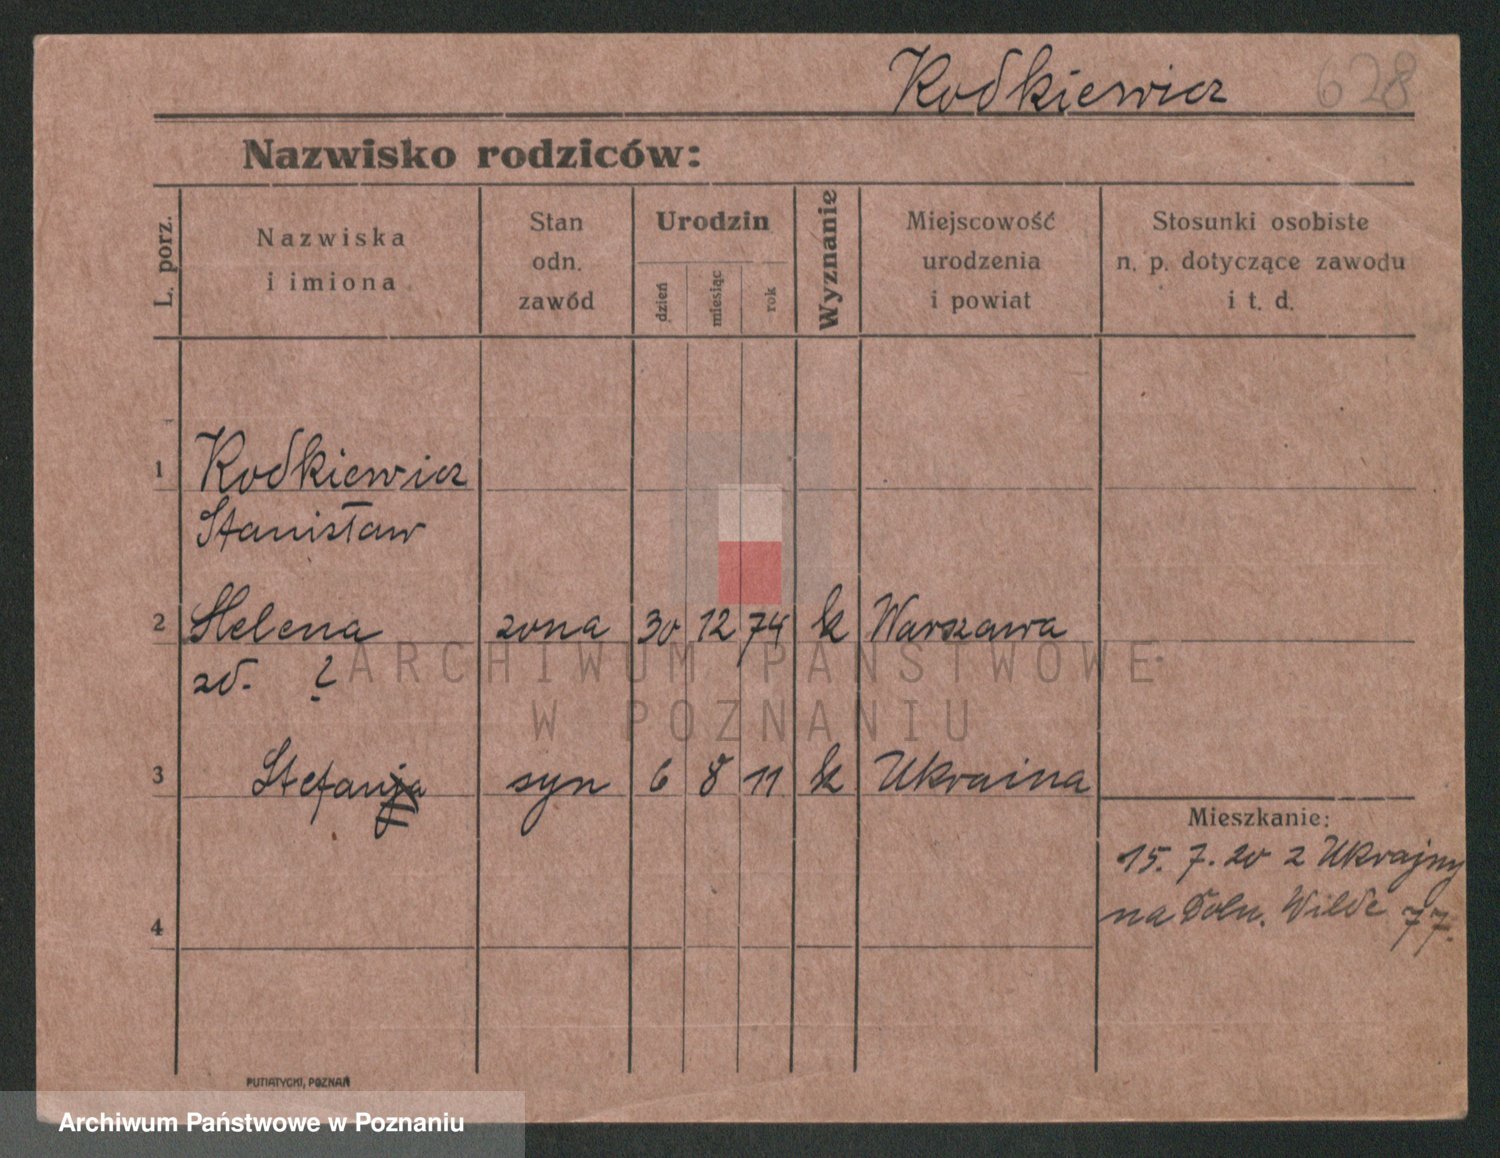 Rodkiewicz 628
Nazwisko rodziców:
L. porz.
Nazwiska
i imiona
Stan
odn.
zawód
Urodzin
dzień
miesiąc
rok
Wyznanie
Miejscowość
urodzenia
i powiat
Stosunki osobiste
n. p. dotyczące zawodu
i t. d.
1 Rodkiewicz
Stanisław
2 Helena żona 30 12 74 k Warszawa
zd. ?
3 Stefan syn 6 8 11 k Ukraina
Mieszkanie:
15. 7. 20 z Ukrajny
na Doln. Wilde 77.
4
PUTIATYCKI, POZNAŃ
ARCHIWUM PAŃSTWOWE
W POZNANIU
Archiwum Państwowe w Poznaniu